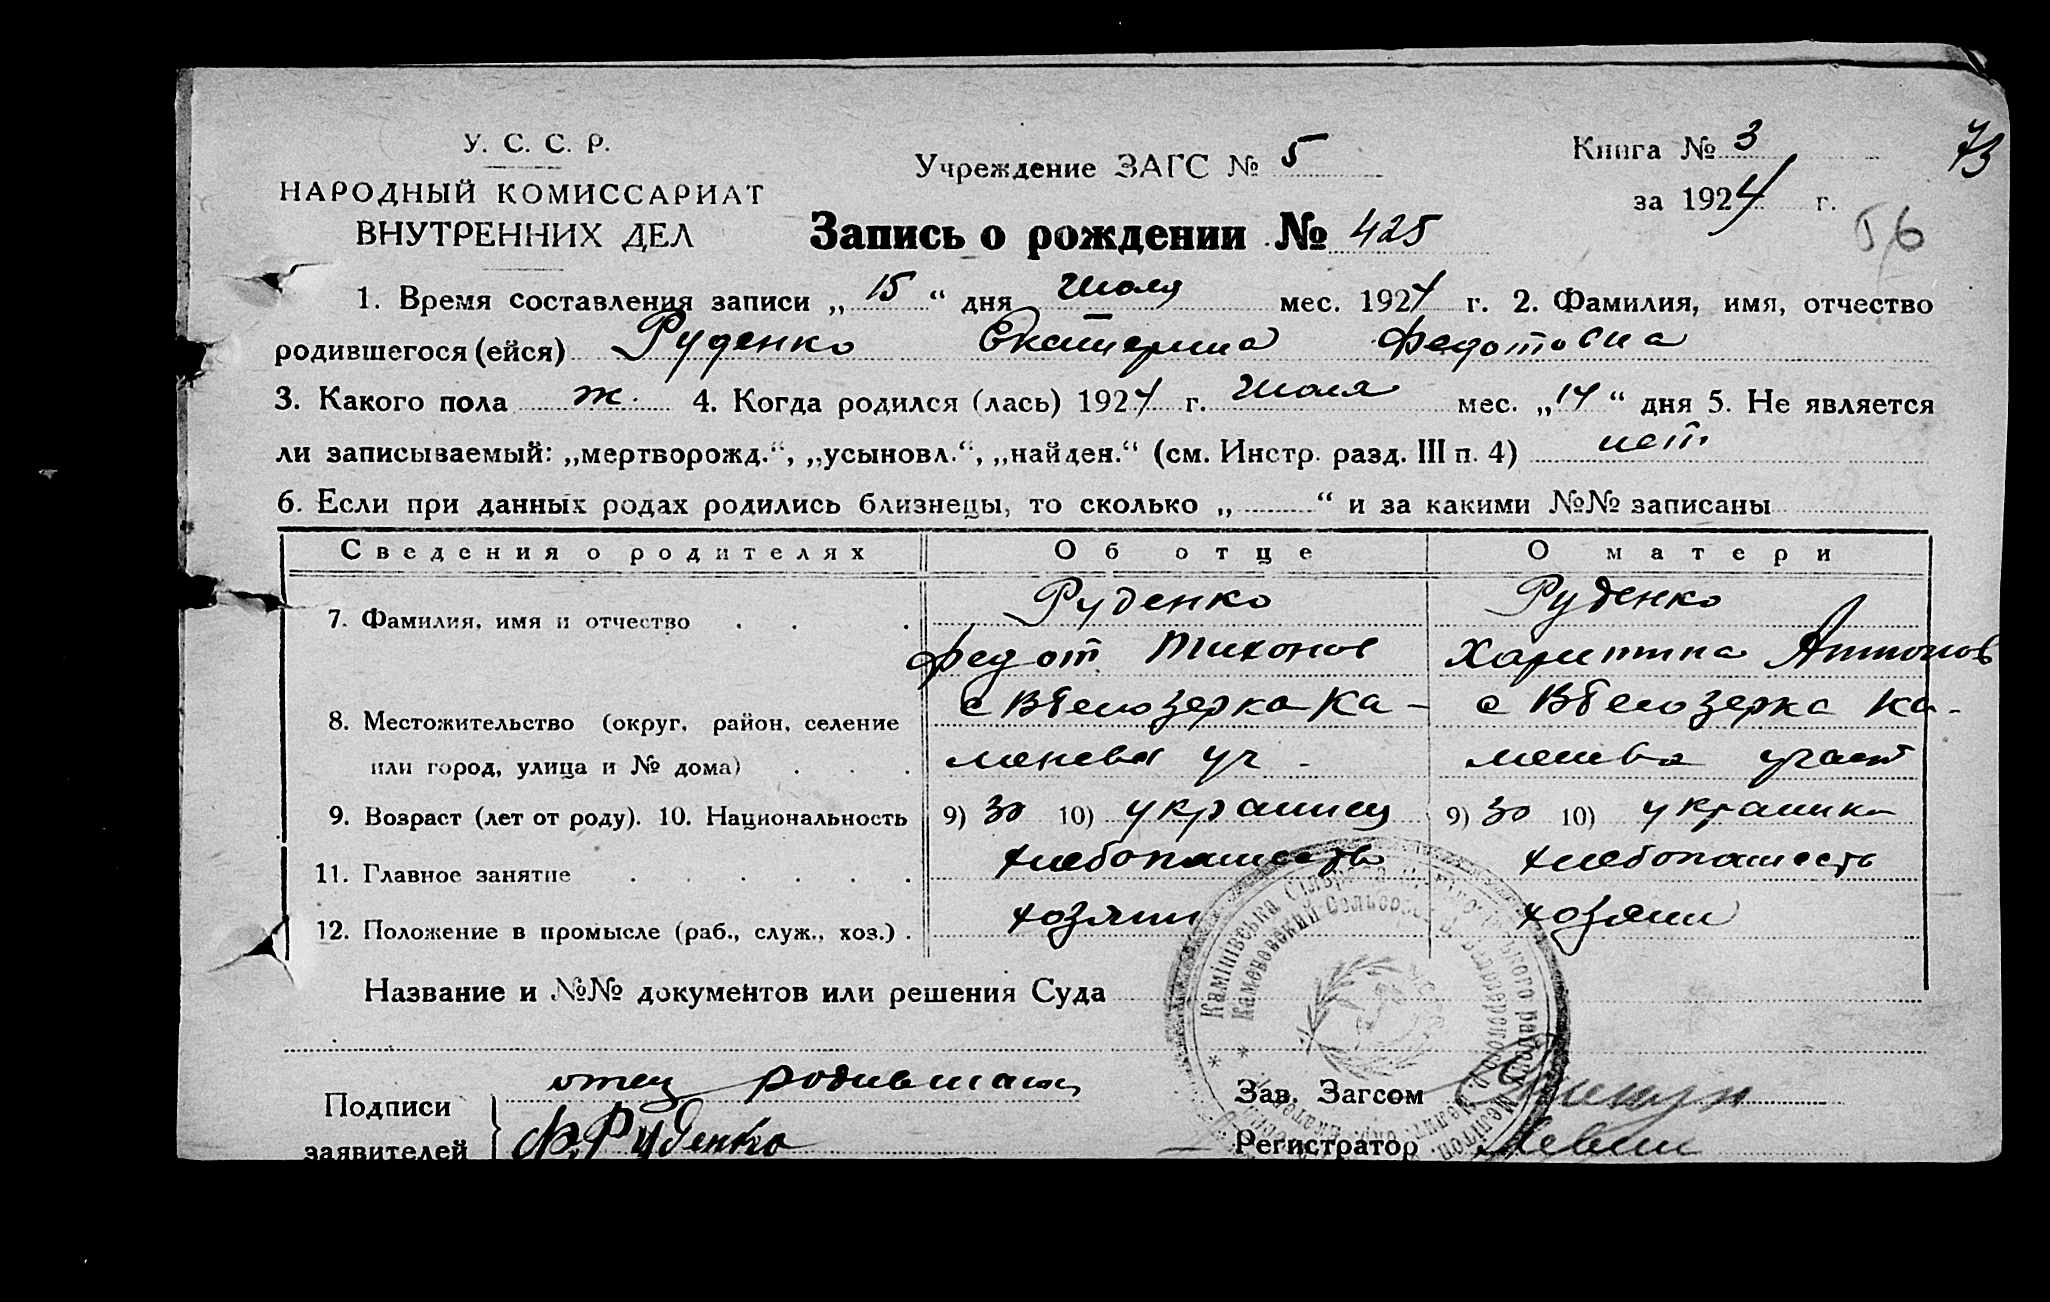 У. С. С. Р.
НАРОДНЫЙ КОМИССАРИАТ
ВНУТРЕННИХ ДЕЛ
Учреждение ЗАГС № 5
Книга № 3
73
за 1924 г.
56
Запись о рождении № 425
1. Время составления записи „15“ дня Июля мес. 1924 г. 2. Фамилия, имя, отчество
родившегося (ейся) Руденко Екатерина Федотовна
3. Какого пола ж. 4. Когда родился (лась) 1924 г. Июля мес. „14“ дня 5. Не является
ли записываемый: „мертворожд.“, „усыновл.“, „найден.“ (см. Инстр. разд. III п. 4) нет
6. Если при данных родах родились близнецы, то сколько „ “ и за какими №№ записаны
Сведения о родителях Об отце О матери
7. Фамилия, имя и отчество Руденко Руденко
Федот Тихонов Харитина Антонов
8. Местожительство (округ, район, селение с ВБелозерка Ка- с ВБелозерка Ка-
или город, улица и № дома) менева уч менева участ
9. Возраст (лет от роду). 10. Национальность 9) 30 10) украинец 9) 30 10) украинка
11. Главное занятие хлебопашеств хлебопашеств
12. Положение в промысле (раб., служ., хоз.) хозяин хозяин
Название и №№ документов или решения Суда
Камінівська Сільрада
Каменевский Сельсовет
Подписи
заявителей
отец родившая
Ф. Руденко
Зав. Загсом
Регистратор